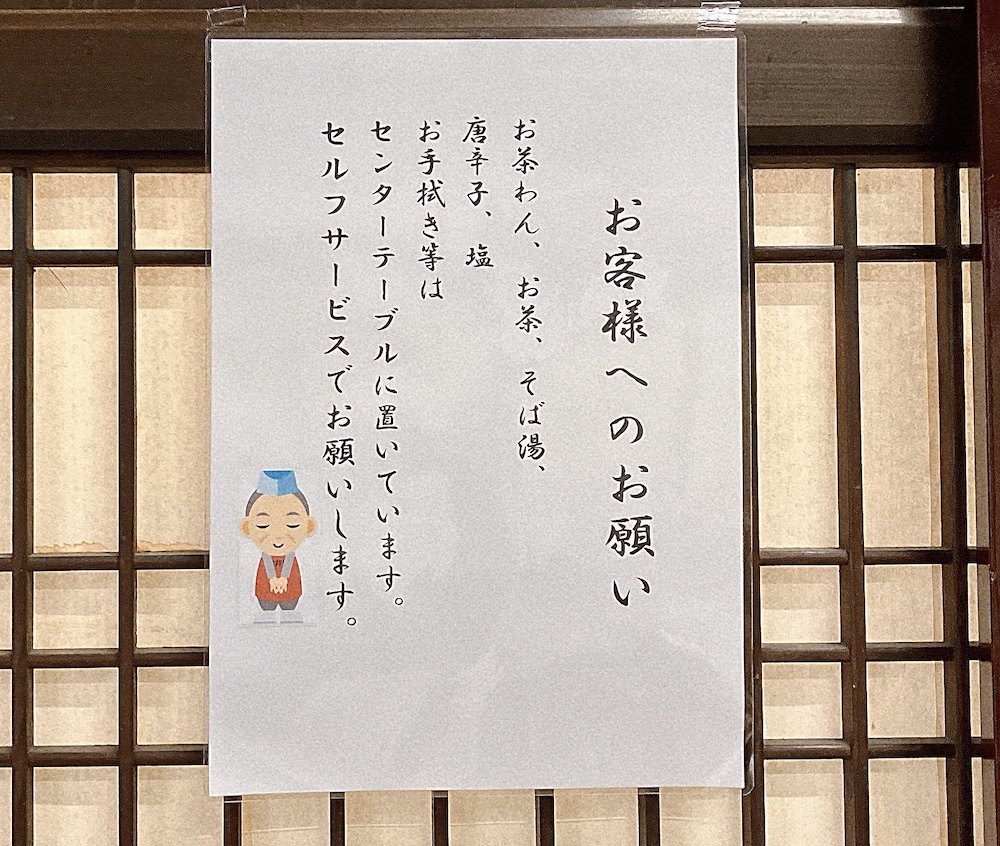 お客様へのお願い
お茶わん、お茶、そば湯、
唐辛子、塩
お手拭き等は
センターテーブルに置いています。
セルフサービスでお願いします。